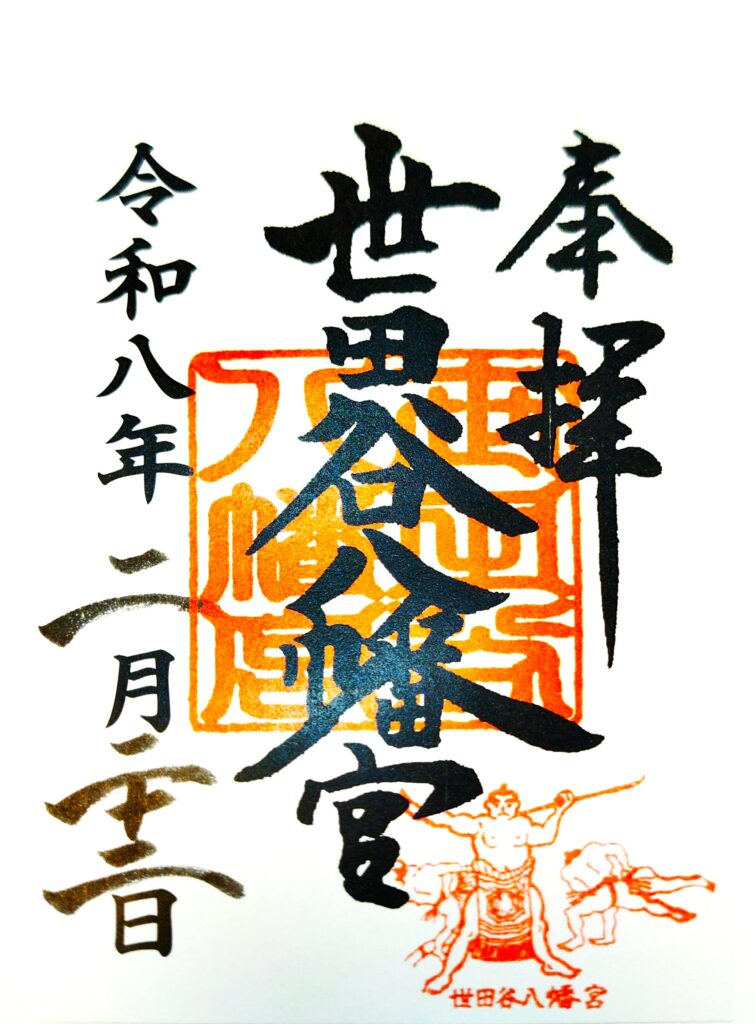 奉拝
世田谷八幡宮
令和八年二月二十二日
世田谷
八幡宮
世田谷八幡宮